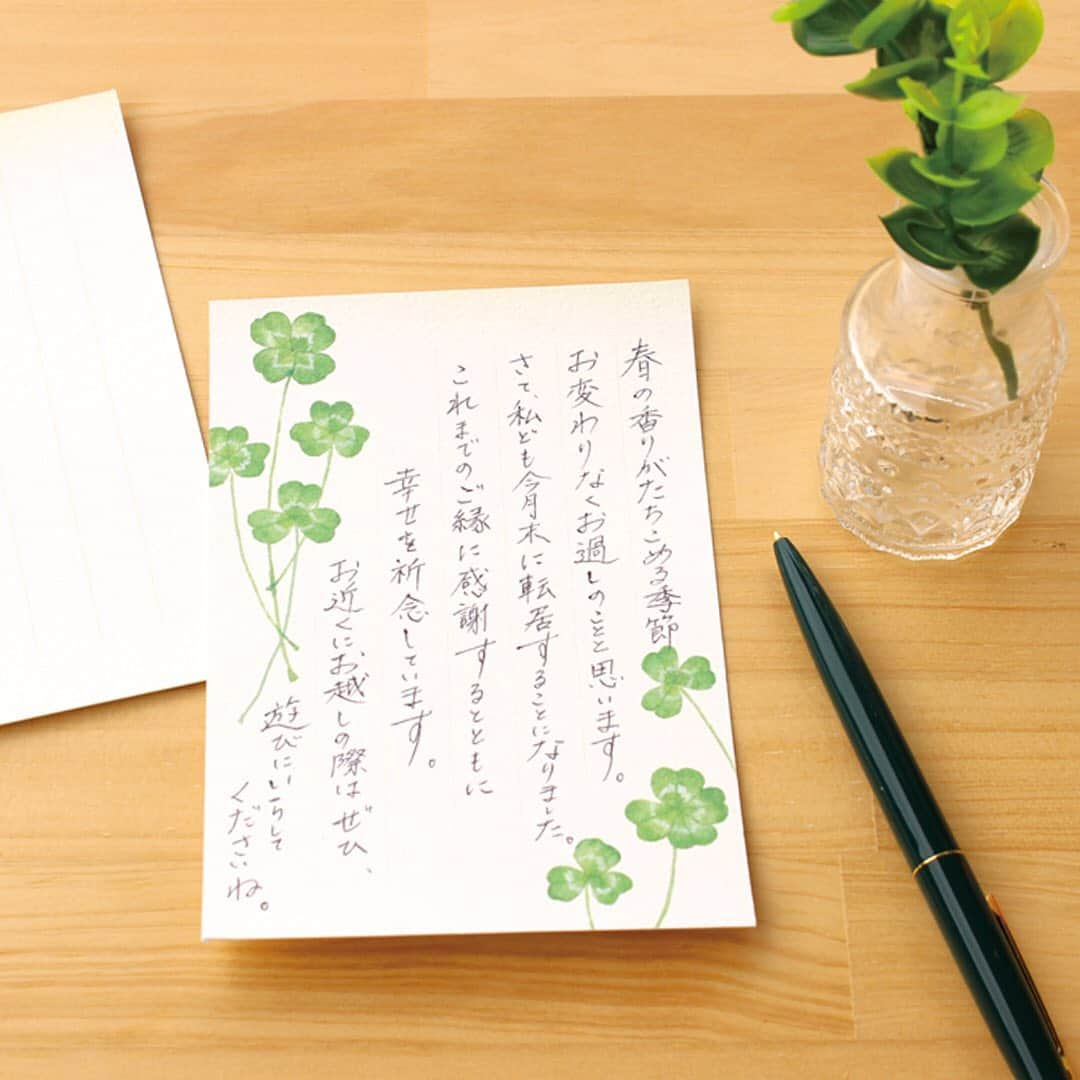 春の香りがたちこめる季節
お変わりなくお過しのことと思います。
さて、私ども今月末に転居することになりました。
これまでのご縁に感謝するとともに
幸せを祈念しています。
お近くに、お越しの際はぜひ、
遊びにいらして
くださいね。